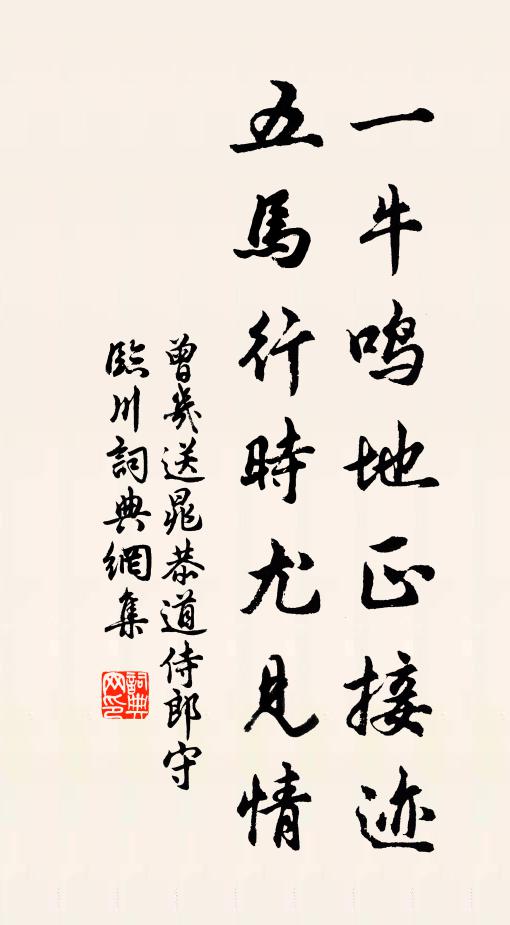 一牛鸣地正接迹
五馬行時尤見情
曾幾送晁恭道侍郎守
臨川詞典網集
詞典网印